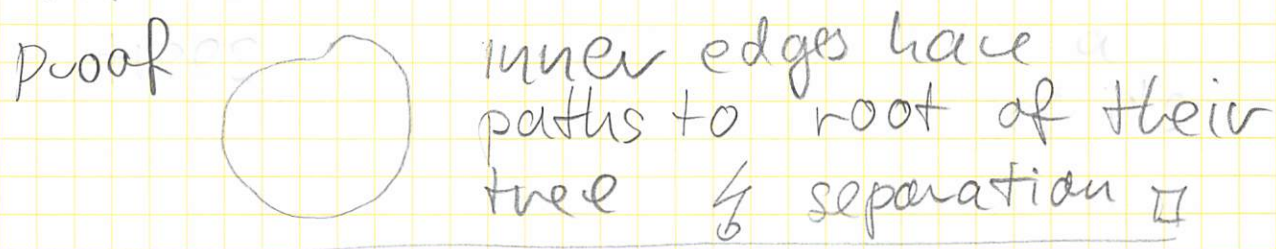 proof inner edges have
paths to root of their
tree ↯ separation □